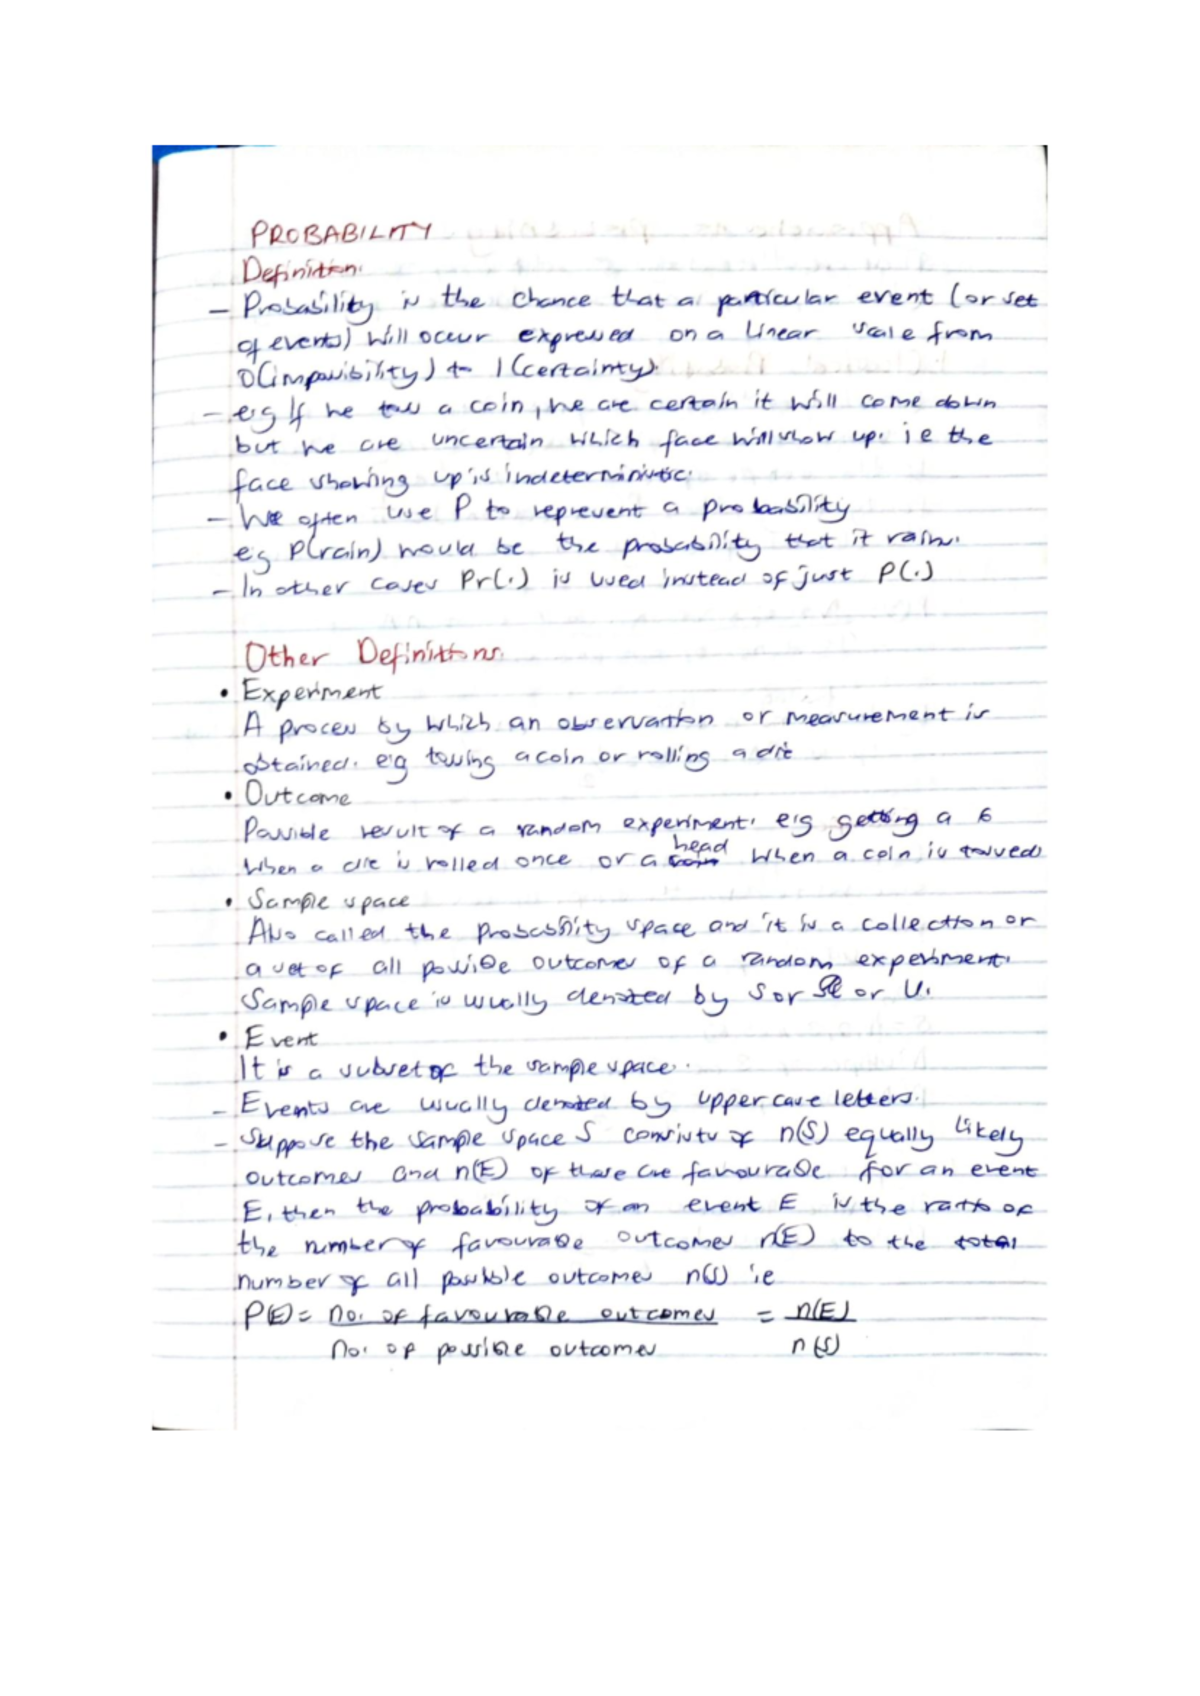 PROBABILITY
Definition.
- Probability is the chance that a particular event (or set
of events) will occur expressed on a linear scale from
0(impossibility) to 1(certainty).
- e.g If we toss a coin, we are certain it will come down
but we are uncertain which face will show up. i e the
face showing up is indeterministic.
- We often use P to represent a probability
eg P(rain) would be the probability that it rains.
- In other cases Pr(.) is used instead of just P(.)
Other Definitions.
• Experiment
A process by which an observation or measurement is
obtained. e.g tossing a coin or rolling a die
• Outcome
Possible result of a random experiment. e.g getting a 6
When a die is rolled once or a head when a coin is tossed
• Sample space
Also called the probability space and it is a collection or
a set of all possible outcomes of a random experiment.
Sample space is usually denoted by S or Ω or U.
• Event
It is a subset of the sample space.
- Events are usually denoted by upper case letters.
- Suppose the sample space S consists of n(S) equally likely
outcomes and n(E) of those are favourable for an event
E, then the probability of an event E is the ratio of
the number of favourable outcomes n(E) to the total
number of all possible outcomes n(S) ie
P(E) = No. of favourable outcomes = n(E)
No. of possible outcomes n(S)